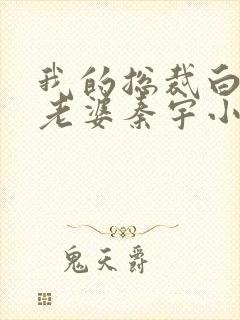 我的总裁白
老婆秦宇小
鬼天爵